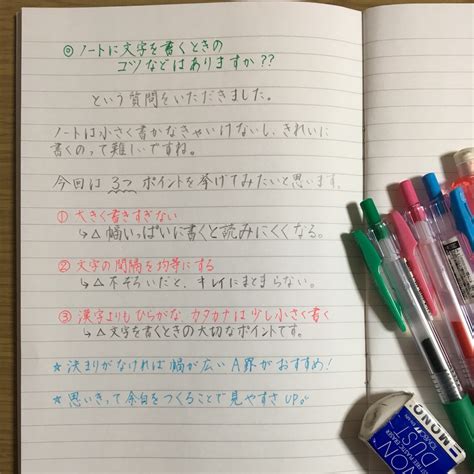 ◎ ノートに文字を書くときの
コツなどはありますか??
という質問をいただきました。
ノートは小さく書かなきゃいけないし、きれいに
書くのって難しいですね。
今回は 3つ ポイントを挙げてみたいと思います。
① 大きく書きすぎない
↳△ 幅いっぱいに書くと読みにくくなる。
② 文字の間隔を均等にする
↳△ 不ぞろいだと、キレイにまとまらない。
③ 漢字よりもひらがな カタカナは少し小さく書く
↳△ 文字を書くときの大切なポイントです。
☆ 決まりがなければ幅が広い A罫がおすすめ!
☆ 思いきって余白をつくることで見やすさUP♪
MONO
NON
DUST